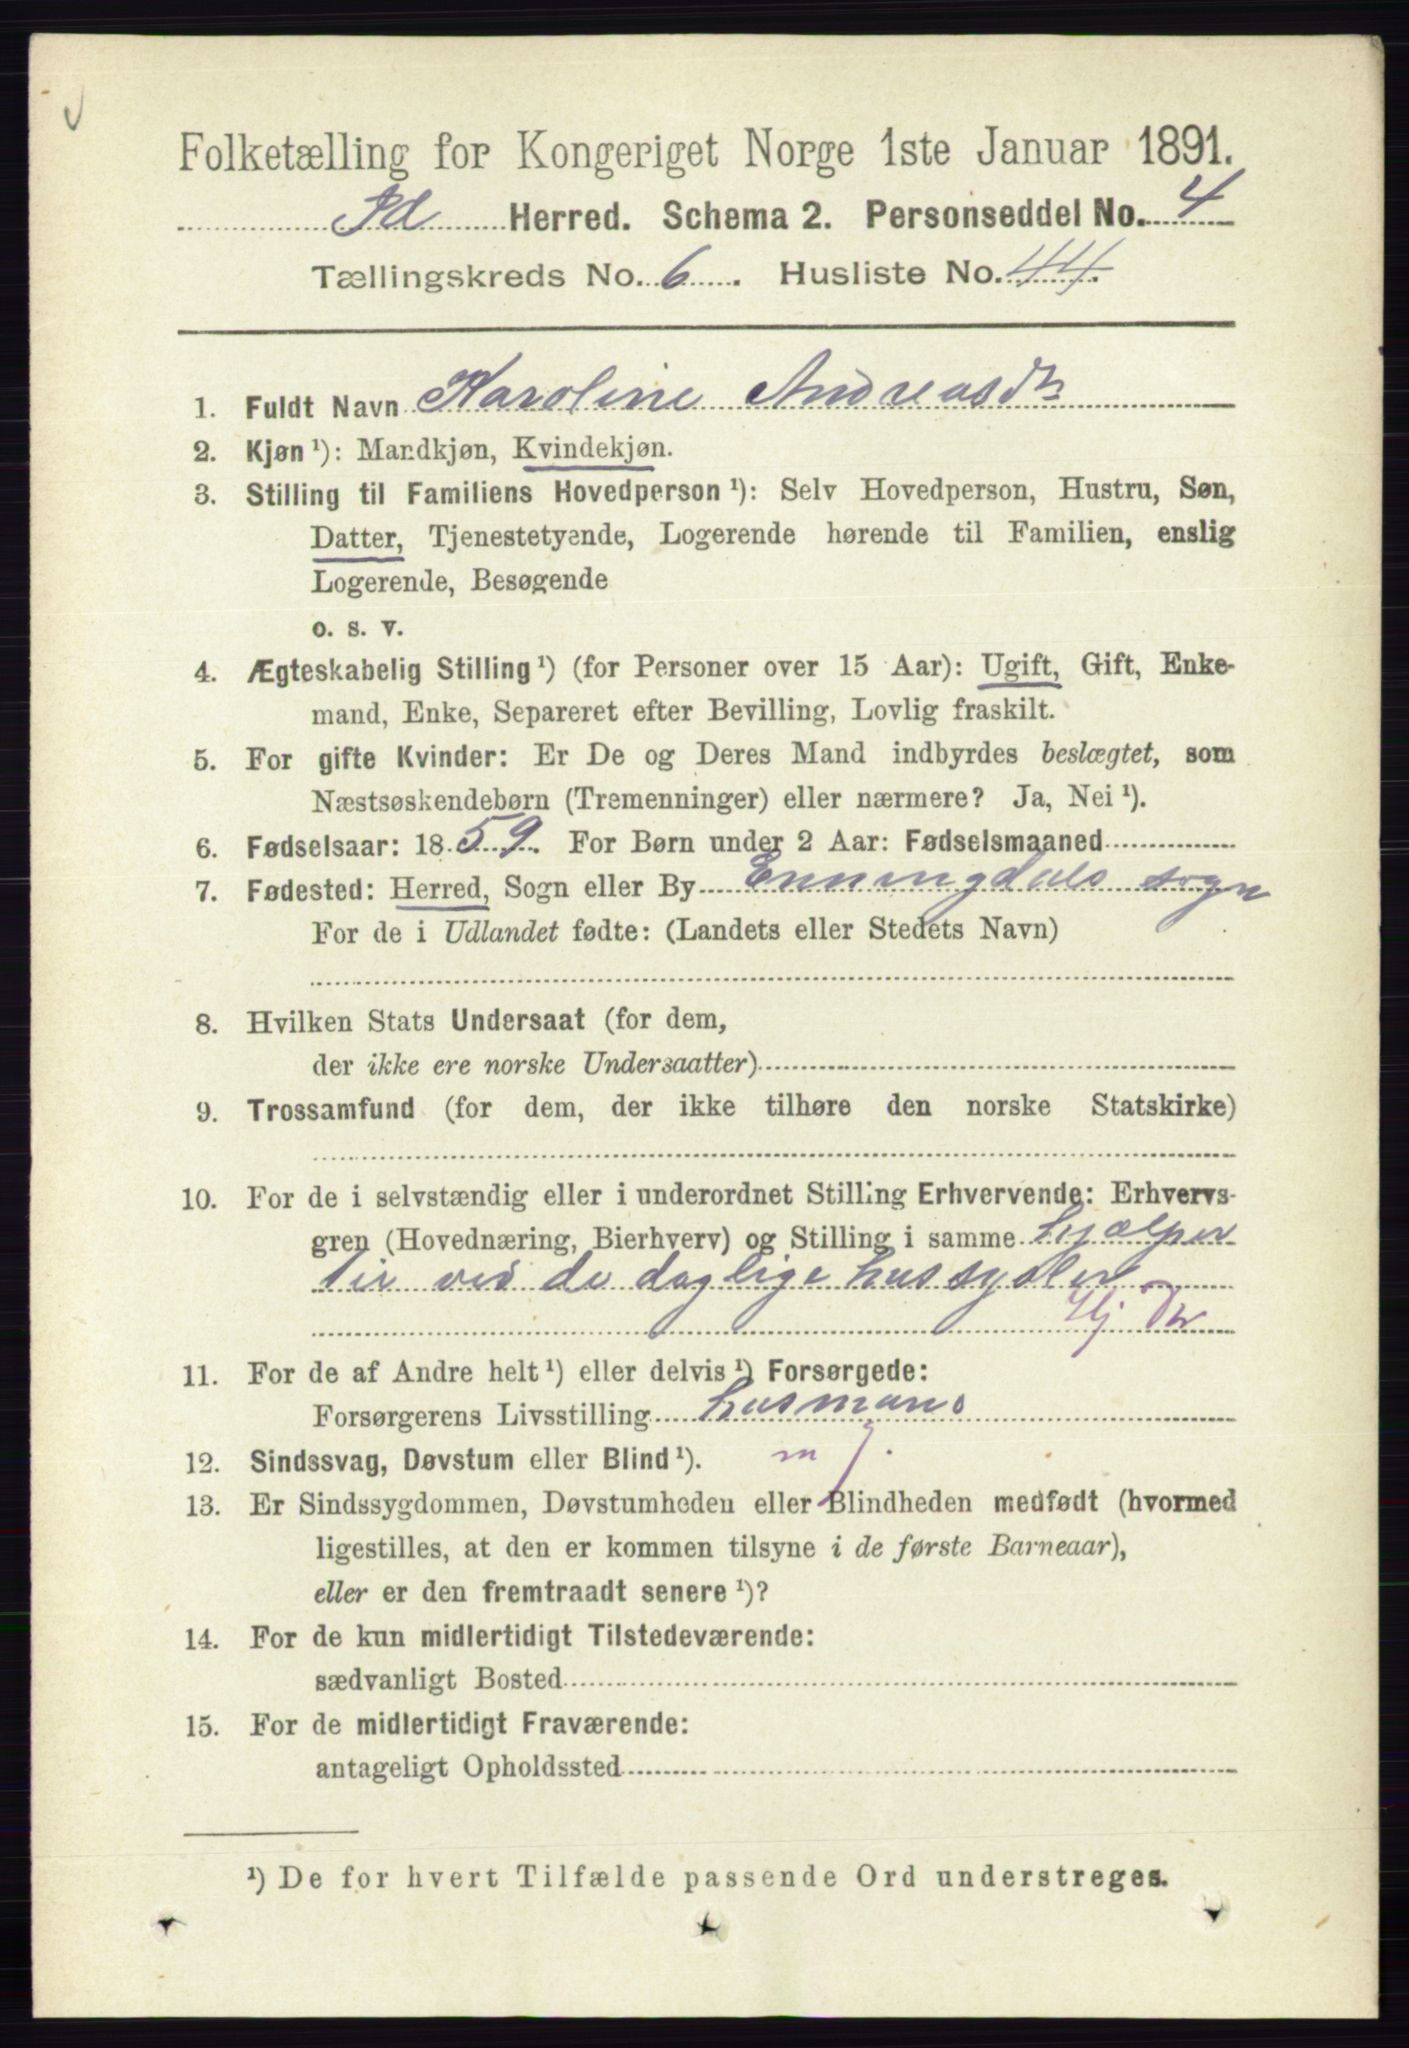 Folketælling for Kongeriget Norge 1ste Januar 1891.
Id Herred. Schema 2. Personseddel No. 4
Tællingskreds No. 6. Husliste No. 44.
1. Fuldt Navn Karoline Andreasdtr
2. Kjøn ¹): Mandkjøn, Kvindekjøn.
3. Stilling til Familiens Hovedperson ¹): Selv Hovedperson, Hustru, Søn,
Datter, Tjenestetyende, Logerende hørende til Familien, enslig
Logerende, Besøgende
o. s. v.
4. Ægteskabelig Stilling ¹) (for Personer over 15 Aar): Ugift, Gift, Enke-
mand, Enke, Separeret efter Bevilling, Lovlig fraskilt.
5. For gifte Kvinder: Er De og Deres Mand indbyrdes beslægtet, som
Næstsøskendebørn (Tremenninger) eller nærmere? Ja, Nei ¹).
6. Fødselsaar: 1859. For Børn under 2 Aar: Fødselsmaaned
7. Fødested: Herred, Sogn eller By Enningdals sogn
For de i Udlandet fødte: (Landets eller Stedets Navn)
8. Hvilken Stats Undersaat (for dem,
der ikke ere norske Undersaatter)
9. Trossamfund (for dem, der ikke tilhøre den norske Statskirke)
10. For de i selvstændig eller i underordnet Stilling Erhvervende: Erhvervs-
gren (Hovednæring, Bierhverv) og Stilling i samme hjælper
til ved de daglige hussysler
Hj
11. For de af Andre helt ¹) eller delvis ¹) Forsørgede:
Forsørgerens Livsstilling husmand
12. Sindssvag, Døvstum eller Blind ¹). m j.
13. Er Sindssygdommen, Døvstumheden eller Blindheden medfødt (hvormed
ligestilles, at den er kommen tilsyne i de første Barneaar),
eller er den fremtraadt senere ¹)?
14. For de kun midlertidigt Tilstedeværende:
sædvanligt Bosted
15. For de midlertidigt Fraværende:
antageligt Opholdssted
¹) De for hvert Tilfælde passende Ord understreges.